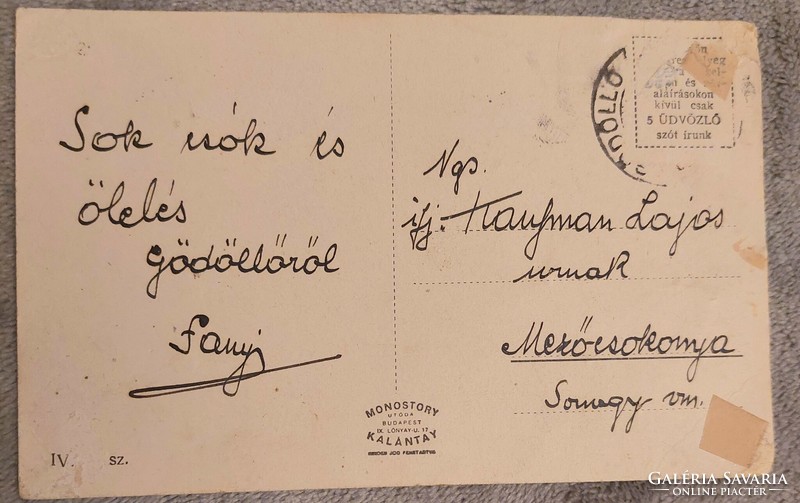 Sok csók és
ölelés
Gödöllőről
Fanyi
IV. sz.
MONOSTORY
UTÓDA
BUDAPEST
IX. LÓNYAY-U. 17
KALÁNTAY
MINDEN JOG FENNTARTVA
és
aláírásokon
kívül csak
5 ÜDVÖZLŐ
szót írunk
Ngs.
ifj. Kaufman Lajos
urnak
Mezőcsokonya
Somogy vm.
GALÉRIA SAVARIA
ONLINE PIACTÉR